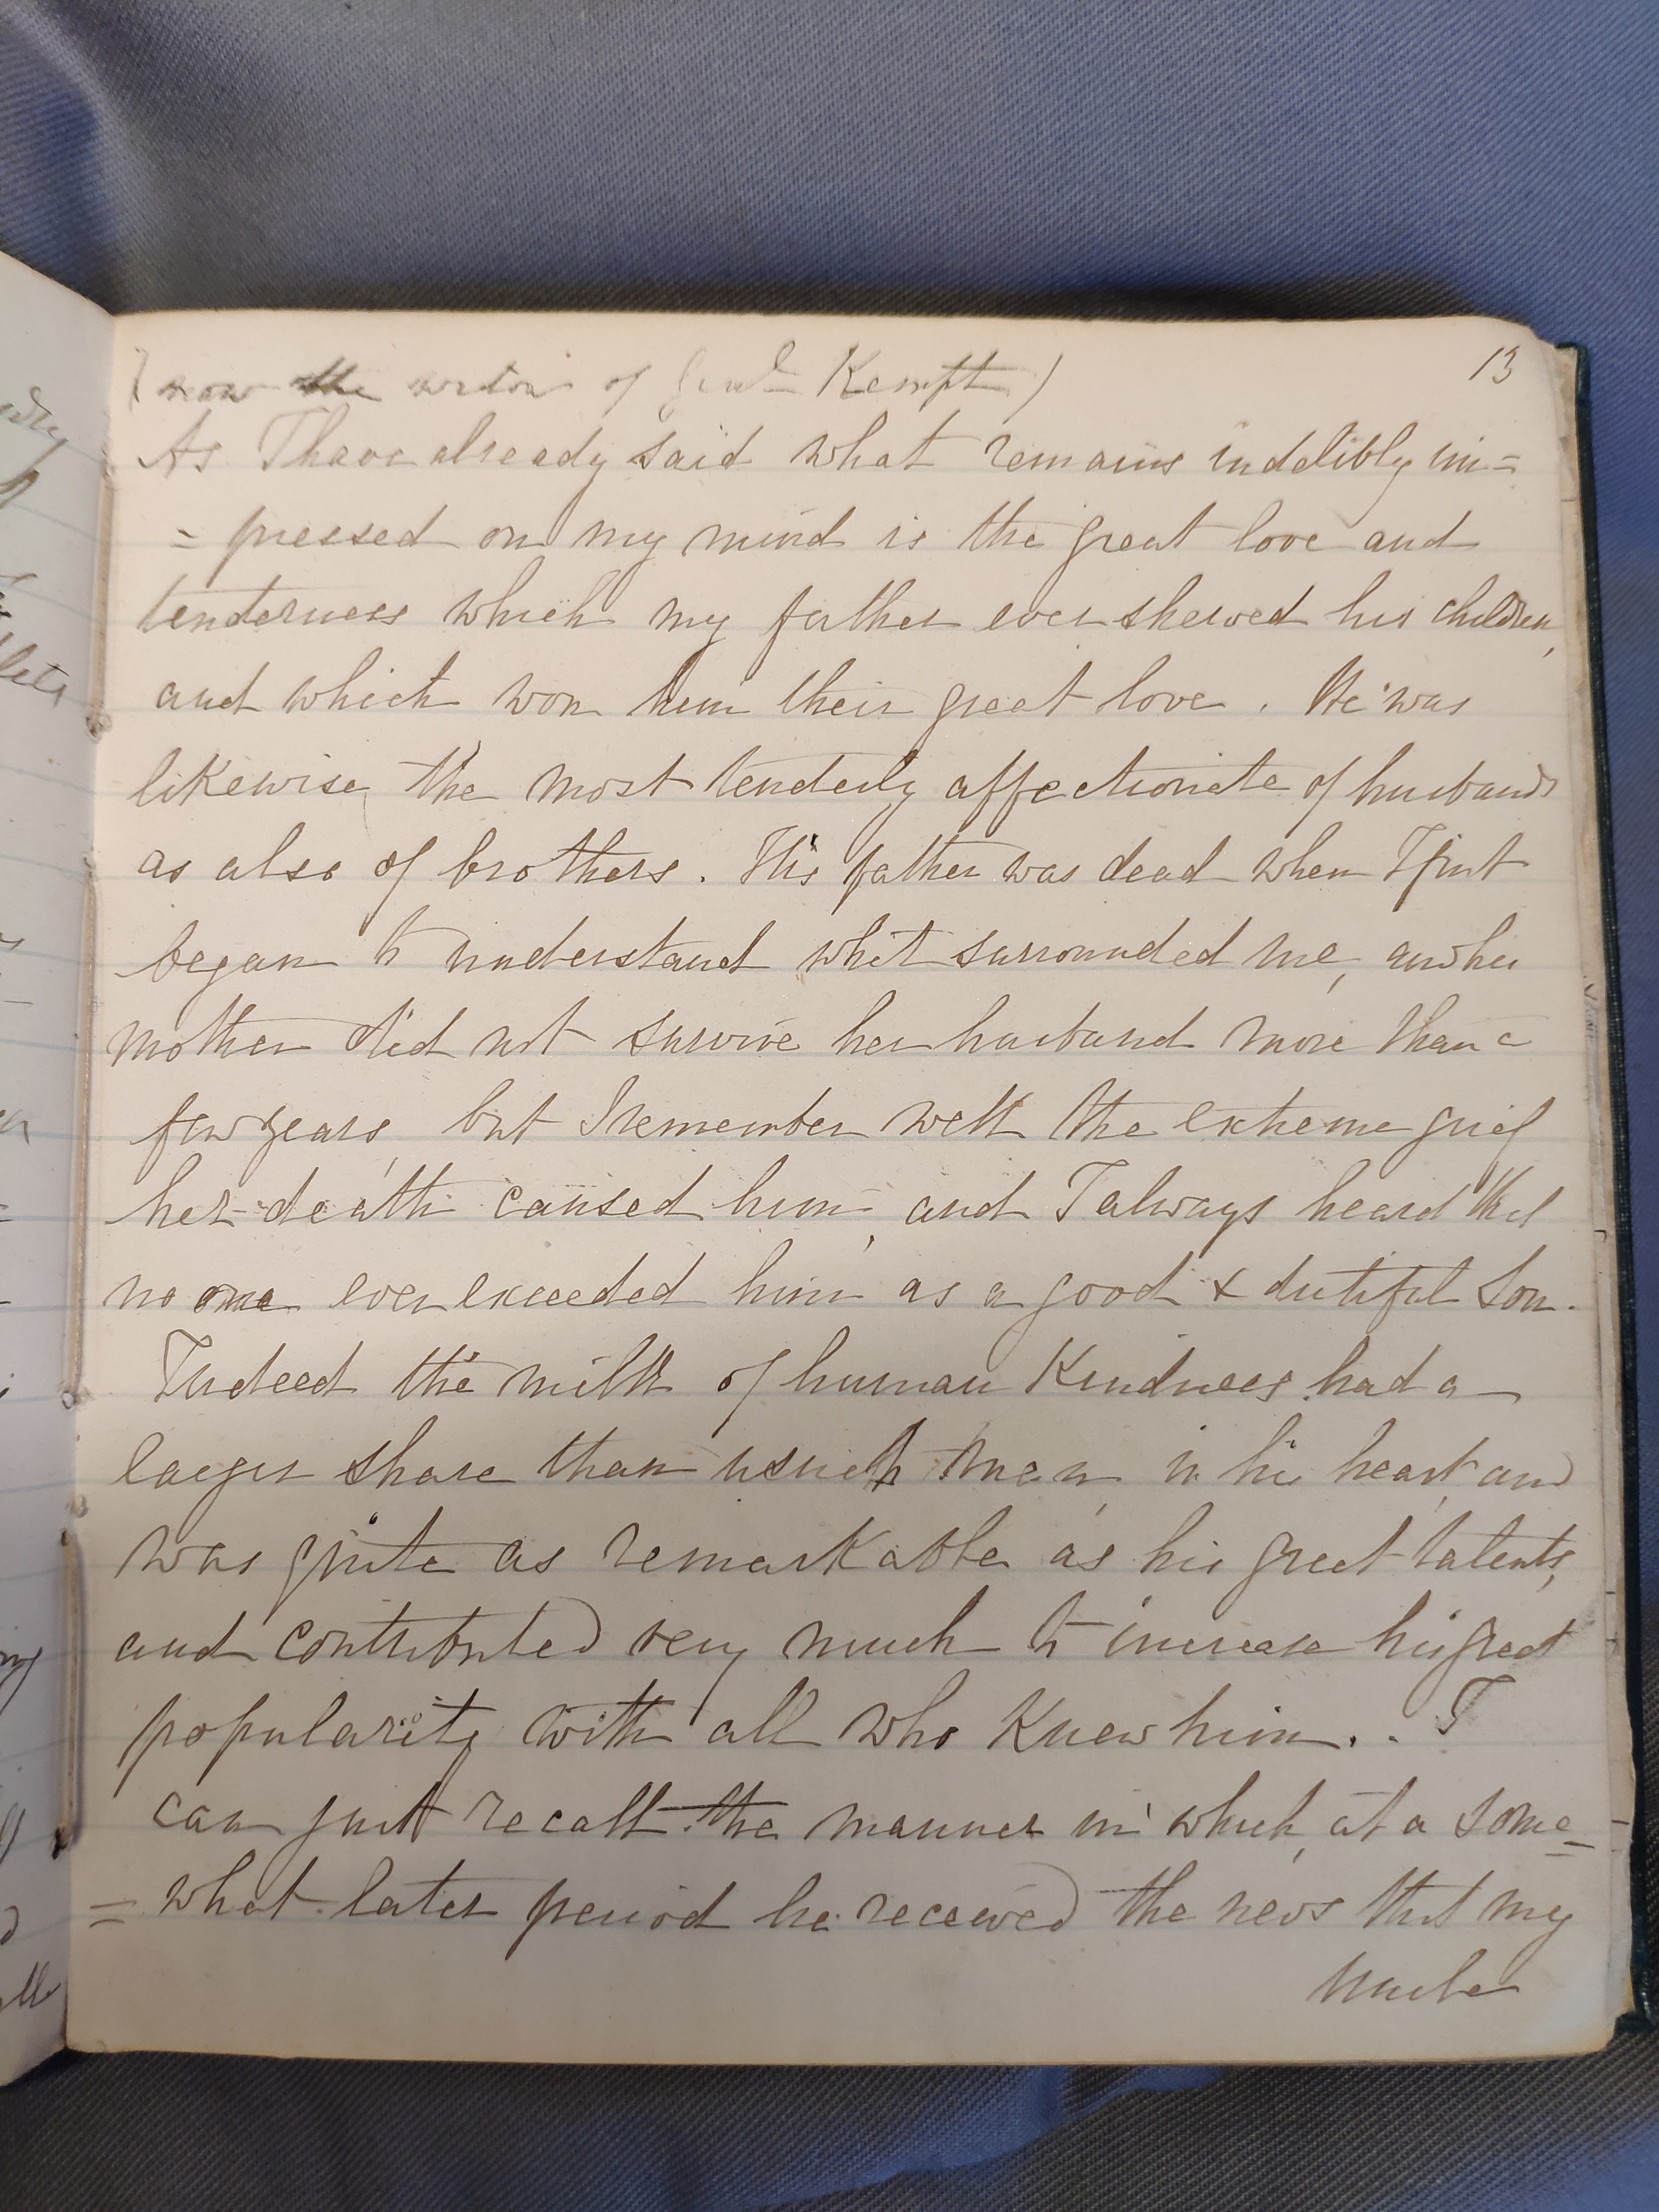 13
(now the widow of Genl Kempt)
As I have already said what remains indelibly im=
= pressed on my mind is the great love and
tenderness which my father ever shewed his children,
and which won him their great love. He was
likewise the most tenderly affectionate of husbands
as also of brothers. His father was dead when I first
began to understand what surrounded me, and his
mother did not survive her husband more than a
few years, but I remember well the extreme grief
her death caused him, and I always heard that
no one ever exceeded him as a good & dutiful Son.
Indeed the milk of human Kindness had a
larger share than in men, in his heart, and
was quite as remarkable as his great talents,
and contributed very much to increase his great
popularity with all who Knew him. . I
can just recall the manner in which, at a some=
= what later period he received the news that my
Uncle